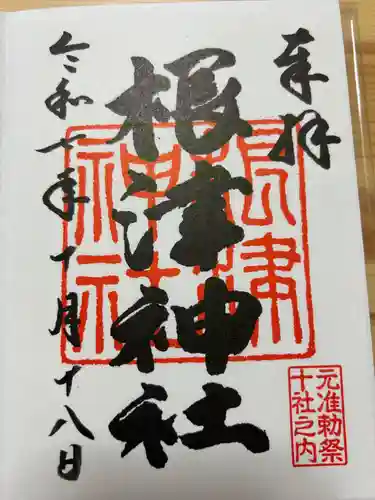 奉拝
根津神社
根津
神社
令和七年十月十八日
元准勅祭
十社之内